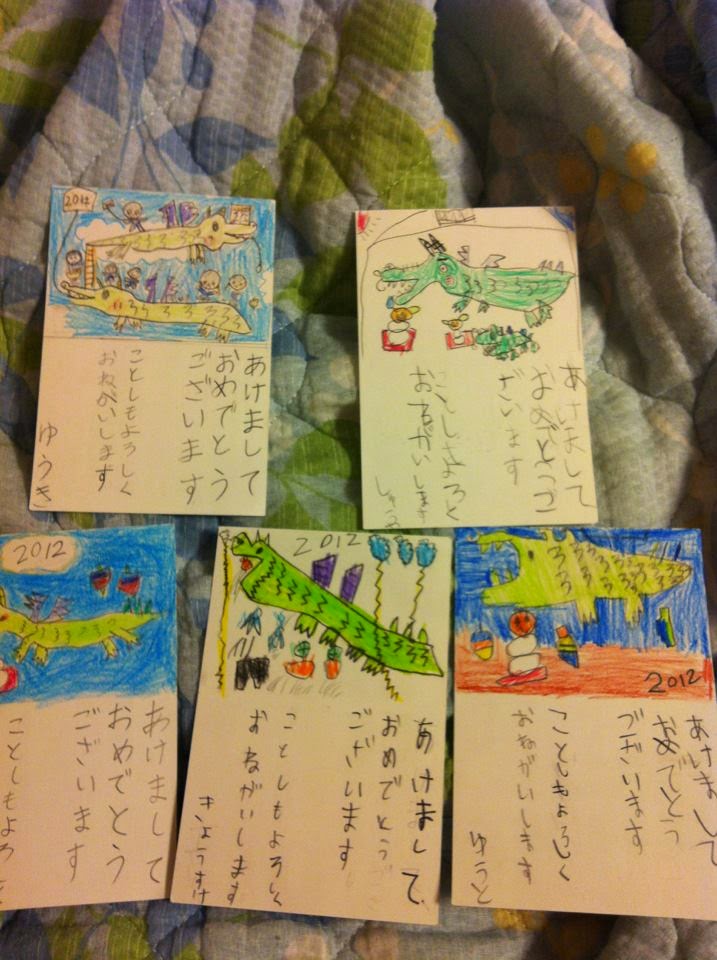 2012
あけまして
おめでとう
ございます
ことしもよろしく
おねがいします
ゆうき
あけまして
おめでとうご
ざいます
おねがいします
2012
あけまして
おめでとう
ございます
ことしもよろ
2012
あけまして
おめでとう
ございます
ことしもよろしく
おねがいします
きょうすけ
2012
あけまして
おめでとう
ございます
ことしもよろしく
おねがいします
ゆうと